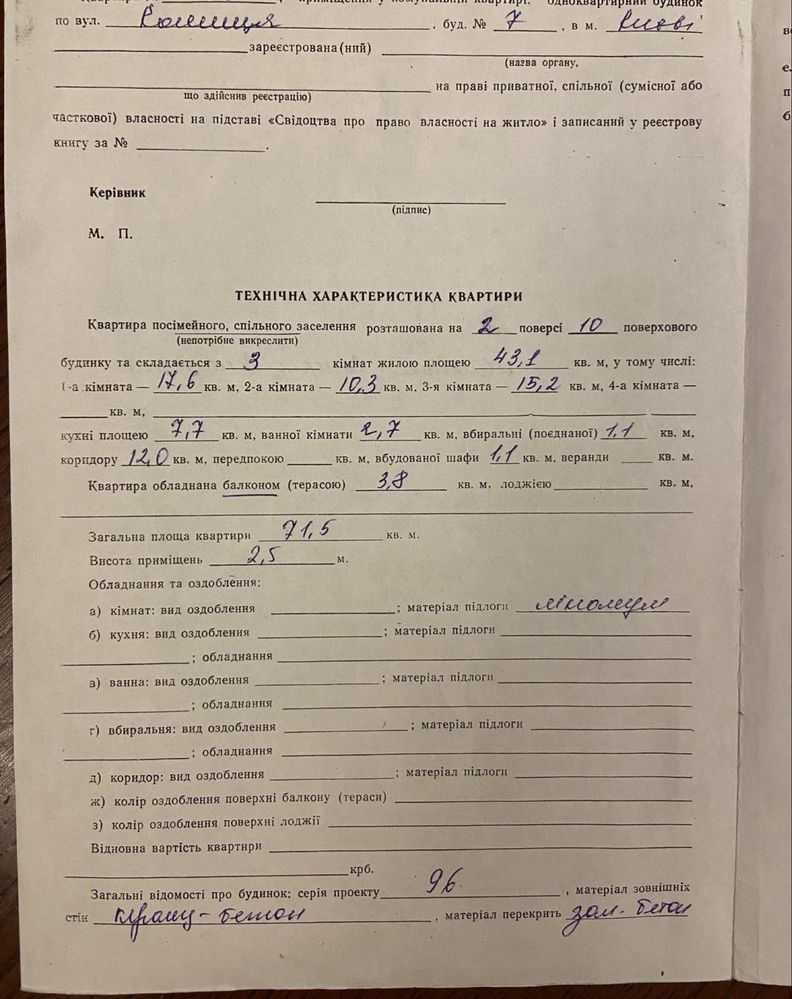 приміщення у комунальній квартирі. одноквартирний будинок
по вул. , буд. № 7 , в м. Києві
зареєстрована(ний)
(назва органу,
на праві приватної, спільної (сумісної або
що здійснив реєстрацію)
часткової) власності на підставі «Свідоцтва про право власності на житло» і записаний у реєстрову
книгу за № .
Керівник
(підпис)
М. П.
ТЕХНІЧНА ХАРАКТЕРИСТИКА КВАРТИРИ
Квартира посімейного, спільного заселення розташована на 2 поверсі 10 поверхового
(непотрібне викреслити)
будинку та складається з 3 кімнат жилою площею 43,1 кв. м, у тому числі:
1-а кімната — 17,6 кв. м, 2-а кімната — 10,3 кв. м, 3-я кімната — 15,2 кв. м, 4-а кімната —
кв. м,
кухні площею 7,7 кв. м, ванної кімнати 2,7 кв. м, вбиральні (поєднаної) 1,1 кв. м,
коридору 12,0 кв. м, передпокою кв. м, вбудованої шафи 1,1 кв. м, веранди кв. м.
Квартира обладнана балконом (терасою) 3,8 кв. м, лоджією кв. м,
Загальна площа квартири 71,5 кв. м.
Висота приміщень 2,5 м.
Обладнання та оздоблення:
а) кімнат: вид оздоблення ; матеріал підлоги лінолеум
б) кухня: вид оздоблення ; матеріал підлоги
; обладнання
в) ванна: вид оздоблення ; матеріал підлоги
; обладнання
г) вбиральня: вид оздоблення ; матеріал підлоги
; обладнання
д) коридор: вид оздоблення ; матеріал підлоги
ж) колір оздоблення поверхні балкону (тераси)
з) колір оздоблення поверхні лоджії
Відновна вартість квартири
крб.
Загальні відомості про будинок: серія проекту 96 , матеріал зовнішніх
стін - бетон , матеріал перекрить зал. бетон